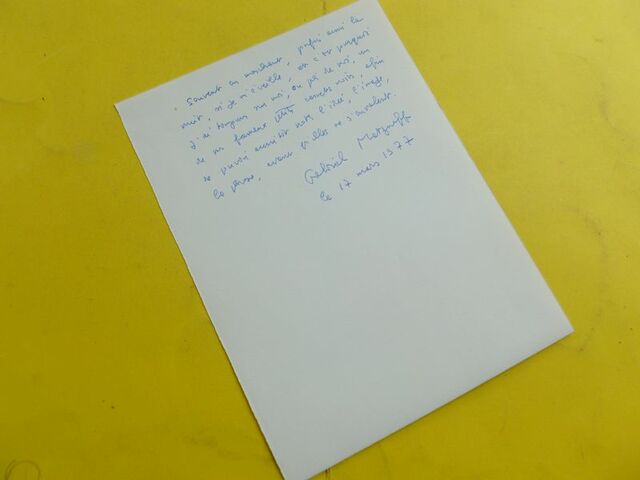 Souvent en marchant, parfois aussi la
nuit, si je m'éveille, et c'est pourquoi
j'ai toujours sur moi, ou près de moi, un
de mes fameux carnets noirs, afin
de pouvoir aussitôt noter l'idée, l'image,
la phrase, avant qu'elles ne s'envolent.
Gabriel Matzneff
le 17 mars 1977